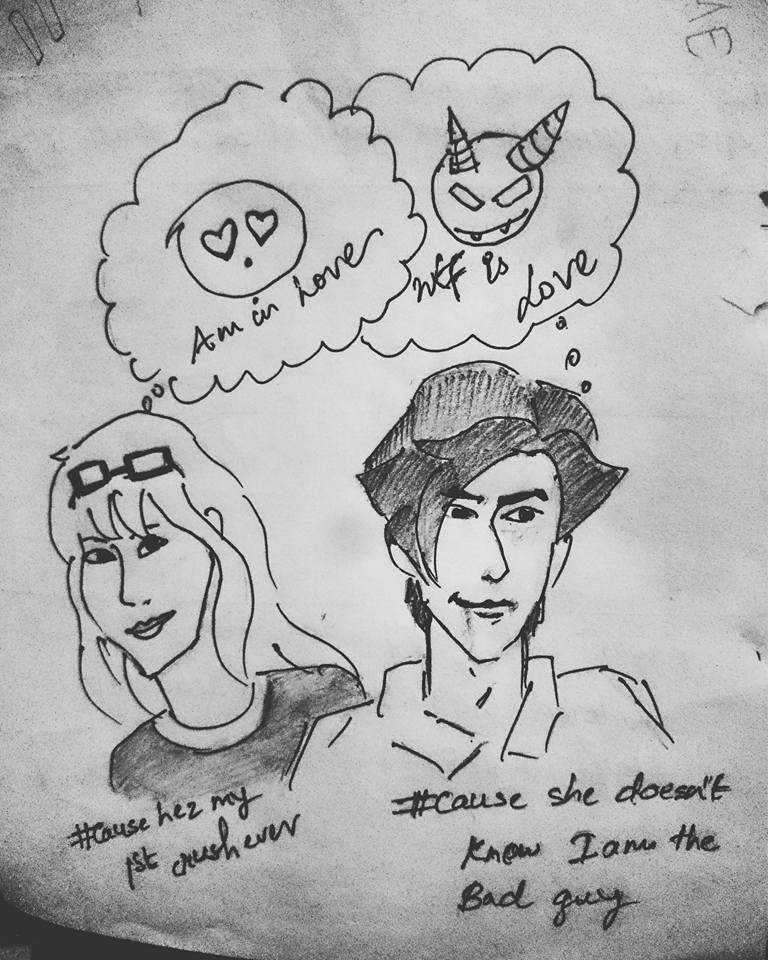 Am in Love
wtf is
Love
#cause hez my
1st crush ever
#cause she doesn't
know I am the
Bad guy